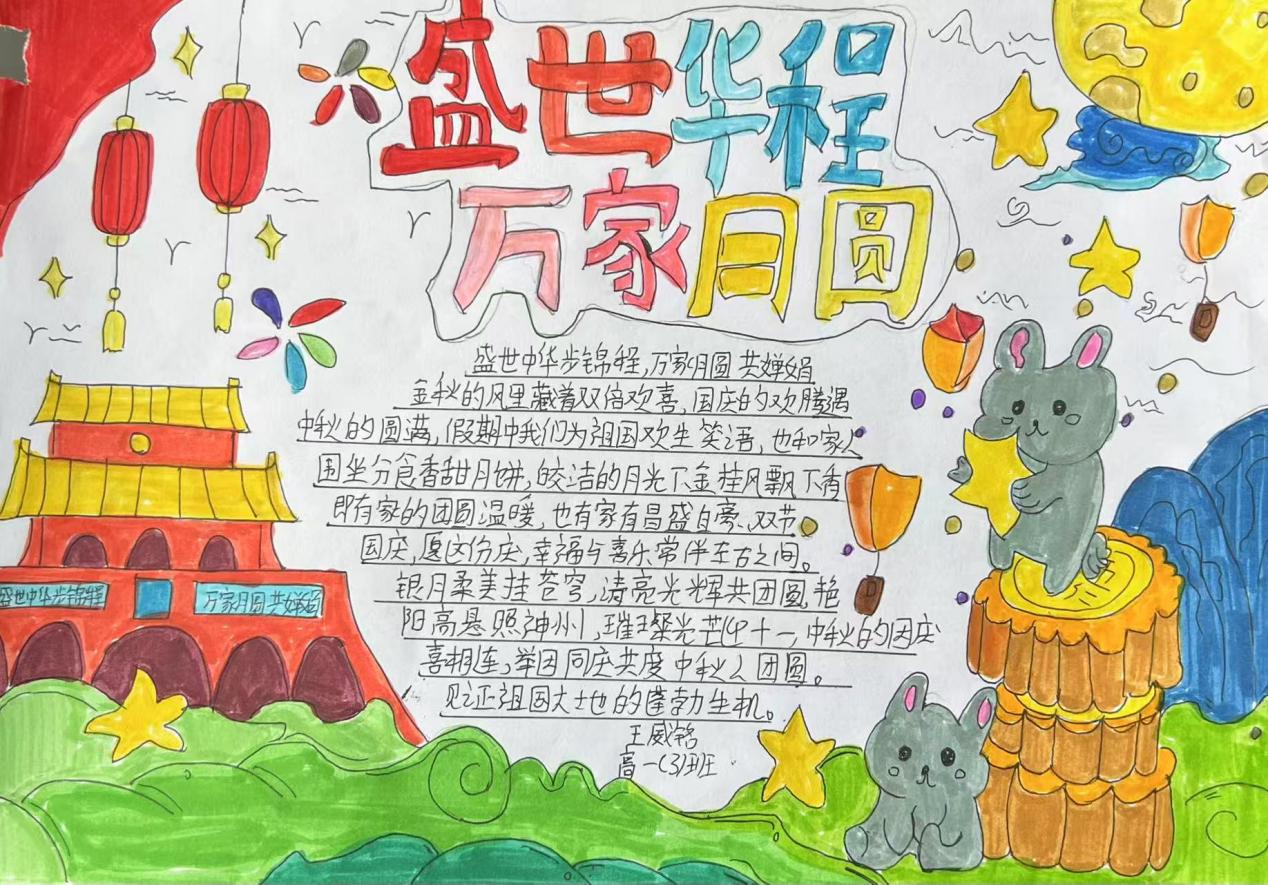 盛世华程
万家月圆
盛世中华步锦程,万家月圆共婵娟
金秋的风里藏着双倍欢喜,国庆的欢腾遇
中秋的圆满,假期中我们为祖国欢生笑语,也和家人
围坐分食香甜月饼,皎洁的月光下金桂风飘下香
即有家的团圆温暖,也有家有昌盛自豪、双节
国庆,愿这份庆,幸福与喜乐常伴左右之间。
银月柔美挂苍穹,清亮光辉共团圆,艳
阳高悬照神州,璀璨光芒化十一,中秋的国庆
喜相连,举国同庆共度中秋人团圆。
见证祖国大土地的蓬勃生机。
王威
高一(3)班
盛世中华步锦程
万家月圆共婵娟